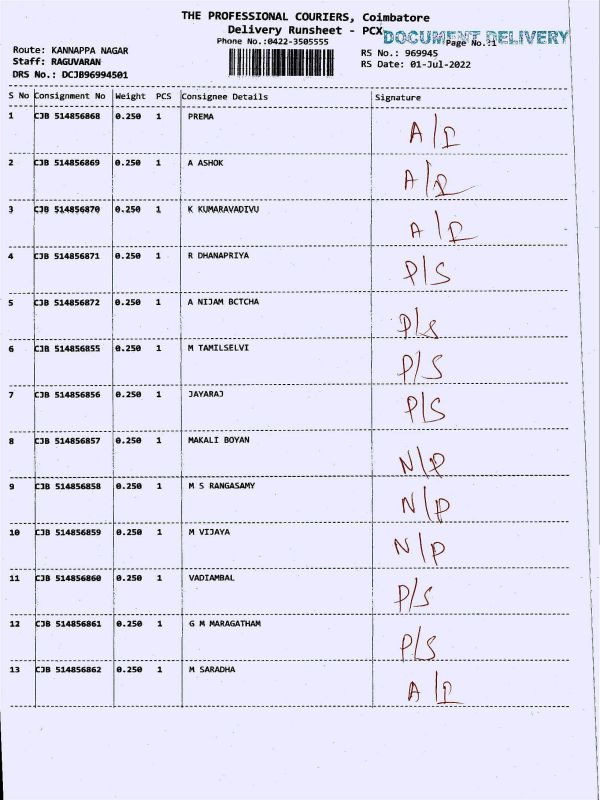 THE PROFESSIONAL COURIERS, Coimbatore
Delivery Runsheet - PCX
DOCUMENT DELIVERY
Phone No.:0422-3505555
Page No.:1
Route: KANNAPPA NAGAR
RS No.: 969945
Staff: RAGUVARAN
RS Date: 01-Jul-2022
DRS No.: DCJB96994501
S No Consignment No Weight PCS Consignee Details Signature
1 CJB 514856868 0.250 1 PREMA A/I
2 CJB 514856869 0.250 1 A ASHOK A/I
3 CJB 514856870 0.250 1 K KUMARAVADIVU A/I
4 CJB 514856871 0.250 1 R DHANAPRIYA P/S
5 CJB 514856872 0.250 1 A NIJAM BCTCHA P/S
6 CJB 514856855 0.250 1 M TAMILSELVI P/S
7 CJB 514856856 0.250 1 JAYARAJ P/S
8 CJB 514856857 0.250 1 MAKALI BOYAN N/P
9 CJB 514856858 0.250 1 M S RANGASAMY N/P
10 CJB 514856859 0.250 1 M VIJAYA N/P
11 CJB 514856860 0.250 1 VADIAMBAL P/S
12 CJB 514856861 0.250 1 G M MARAGATHAM P/S
13 CJB 514856862 0.250 1 M SARADHA A/I